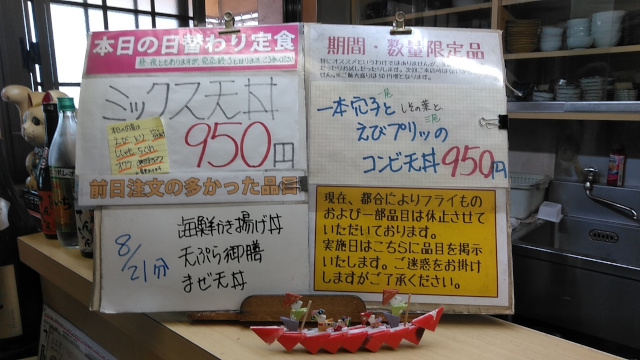 本日の日替わり定食
ミックス天丼
950円
前日注文の多かった品目
8/21分
海鮮かき揚げ丼
天ぷら御膳
まぜ天丼
期間・数量限定品
一本穴子と しその葉と、
えびプリッの
コンビ天丼 950円
現在、都合によりフライもの
および一部品目は休止させて
いただいております。
実施日はこちらに品目を掲示
いたします。ご迷惑をお掛け
しますがご了承ください。